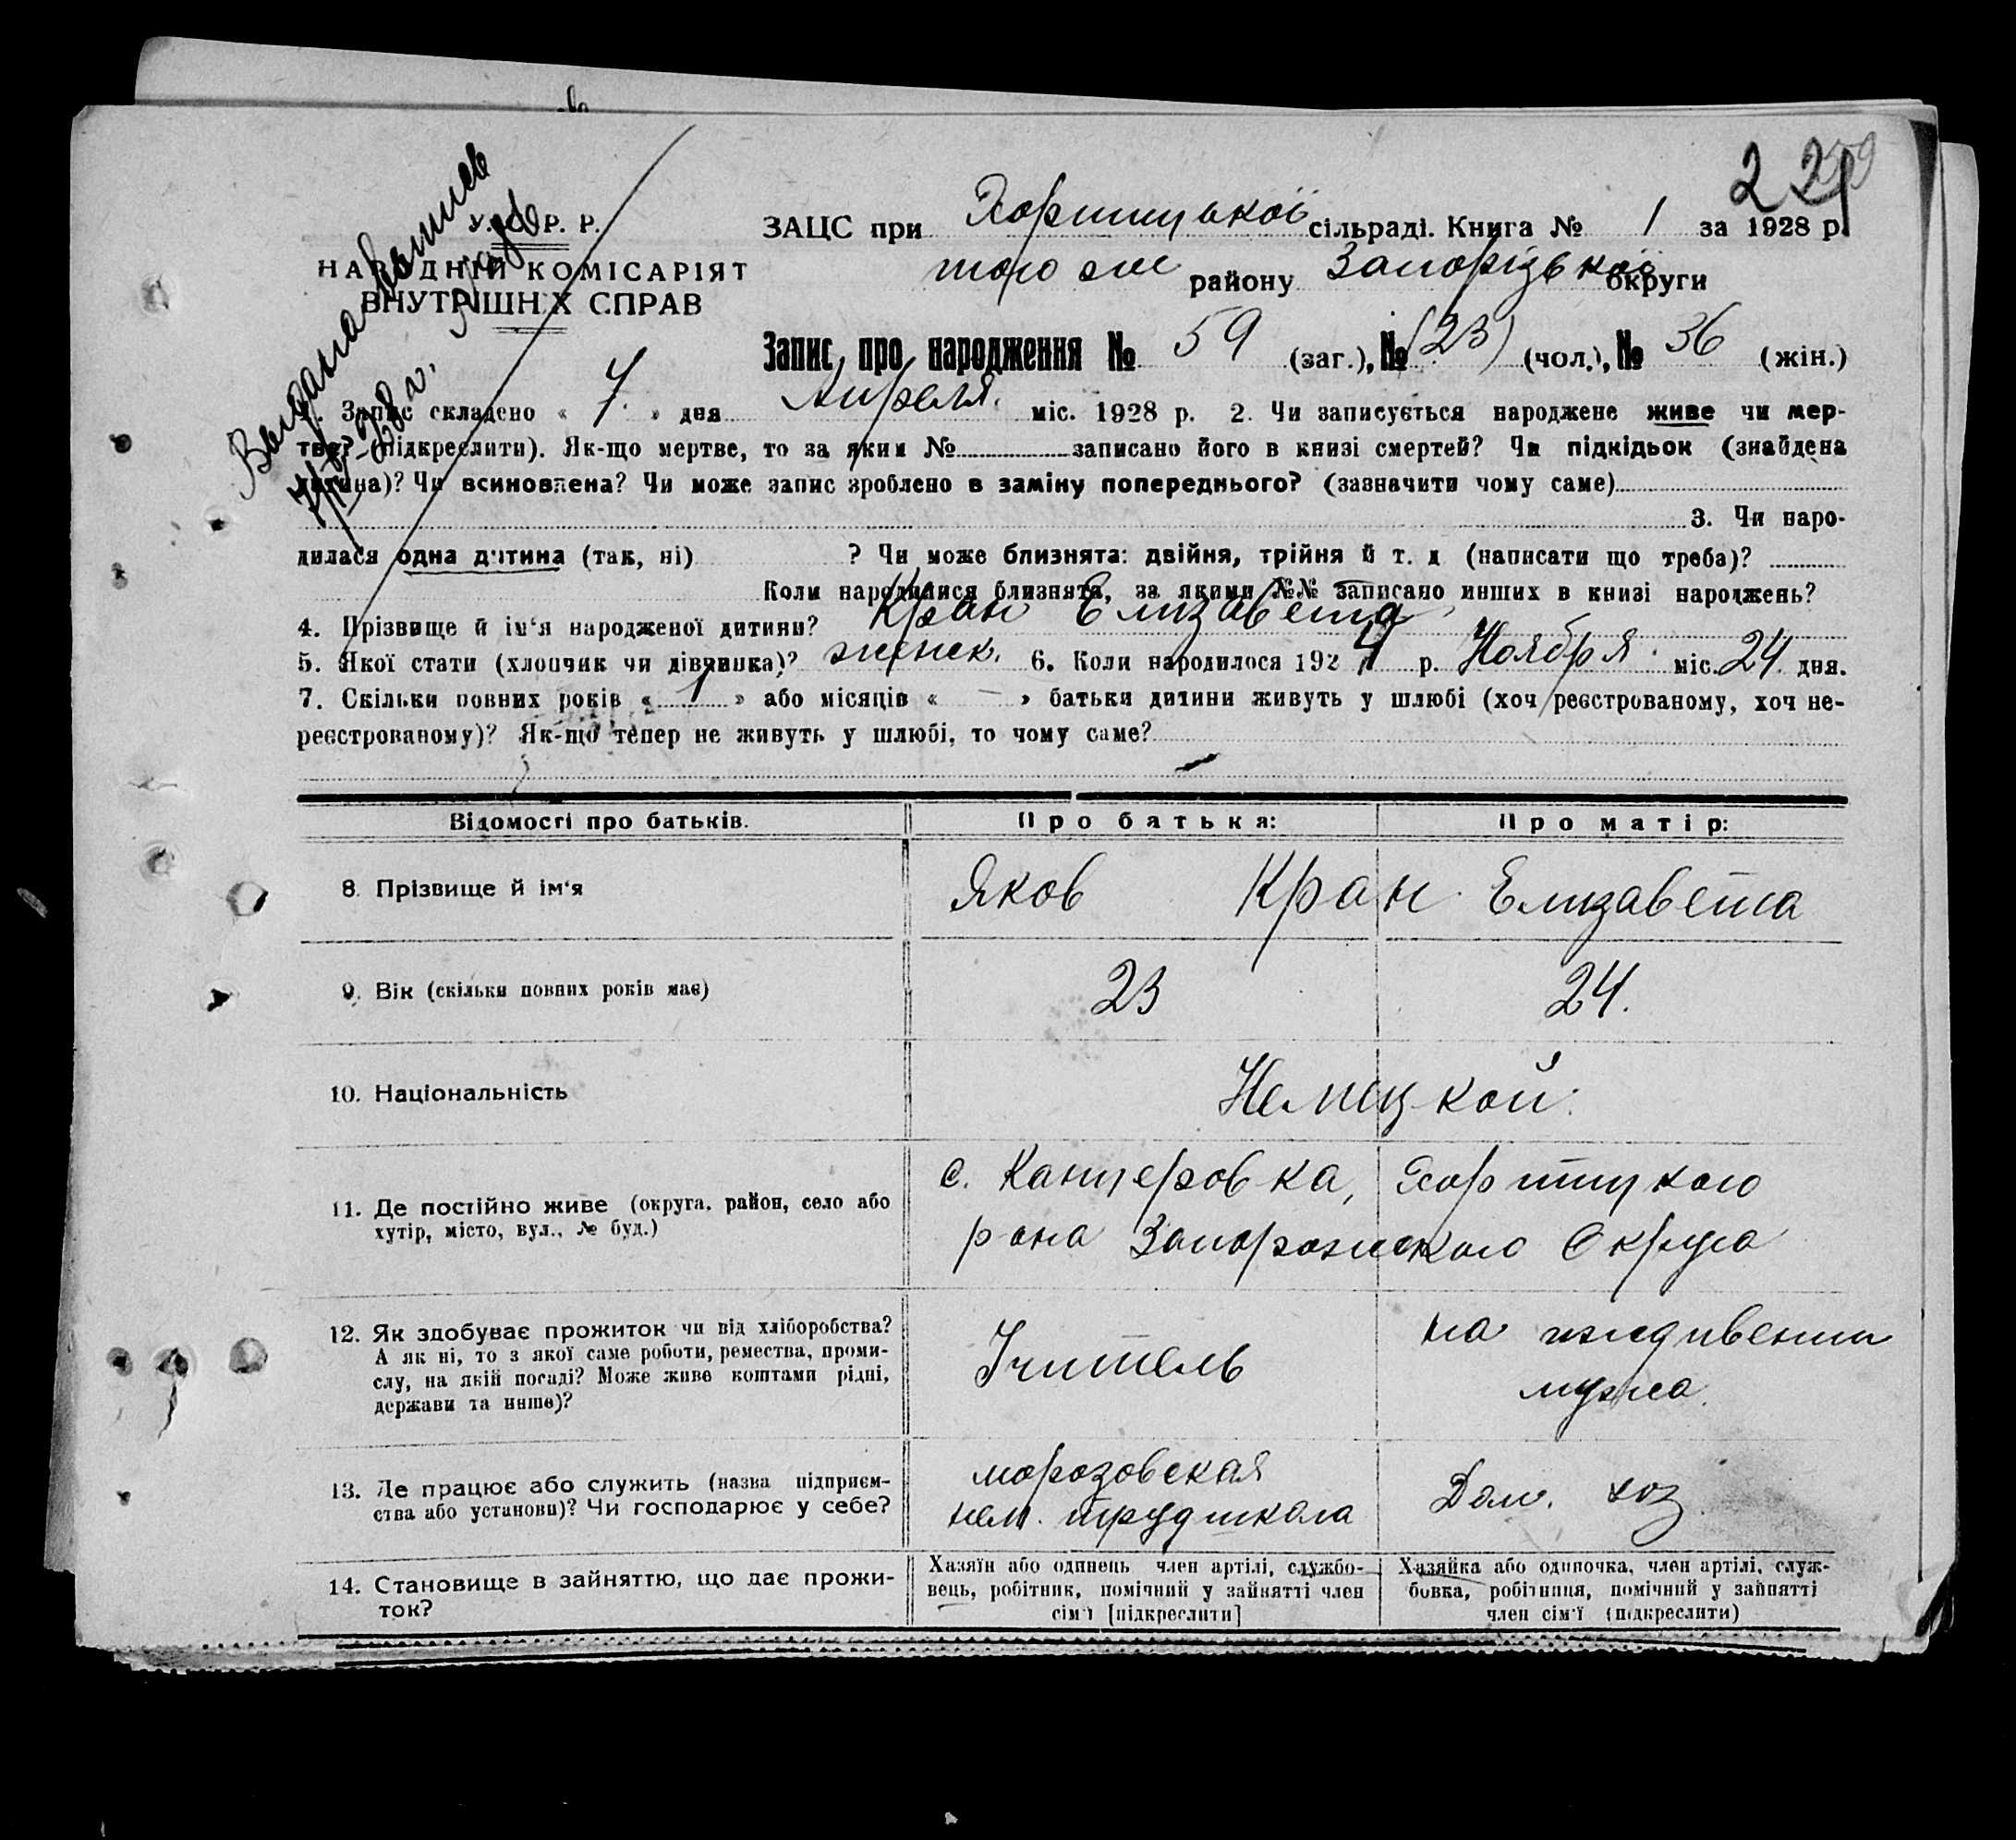 2 2
У. С. Р. Р.
НАРОДНІЙ КОМІСАРІЯТ
ВНУТРІШНІХ СПРАВ
Выдана
ЗАЦС при Хортицької сільраді. Книга № 1 за 1928 р.
того же району Запорізької округи
Запис про народження № 59 (заг.), № (23) (чол.), № 36 (жін.)
1. Запис складено « 7. » дня Апреля. міс. 1928 р. 2. Чи записується народжене живе чи мер-
тве? (підкреслити). Як-що мертве, то за яким № записано його в книзі смертей? Чи підкідьок (знайдена
дитина)? Чи всиновлена? Чи може запис зроблено в заміну попереднього? (зазначити чому саме)
3. Чи наро-
дилася одна дитина (так, ні) ? Чи може близнята: двійня, трійня й т. д (написати що треба)?
Коли народилися близнята, за якими №№ записано инших в книзі народжень?
4. Прізвище й ім'я народженої дитини? Кран Елизавета
5. Якої стати (хлопчик чи дівчинка)? женск. 6. Коли народилося 1924 р. Ноября міс. 24 дня.
7. Скільки повних років « 1 » або місяців « — » батьки дитини живуть у шлюбі (хоч реєстрованому, хоч не-
реєстрованому)? Як-що тепер не живуть у шлюбі, то чому саме?
Відомості про батьків. Про батька: Про матір:
8. Прізвище й ім'я Яков Кран Елизавета
9. Вік (скільки повних років має) 23 24.
10. Національність Немецкой
11. Де постійно живе (округа, район, село або
хутір, місто, вул., № буд.)
с. Канцеровка, Хортицкого
р-она Запорожского Округа
12. Як здобуває прожиток чи від хліборобства?
А як ні, то з якої саме роботи, ремества, проми-
слу, на якій посаді? Може живе коштами рідні,
держави та инше)?
Учитель
на иждивении
мужа.
13. Де працює або служить (назва підприєм-
ства або установи)? Чи господарює у себе?
морозовская
нем. трудшкола
Дом. хоз
14. Становище в зайняттю, що дає прожи-
ток?
Хазяїн або одинець член артілі, службо-
вець, робітник, помічний у зайнятті член
сім'ї [підкреслити]
Хазяйка або одиночка, член артілі, служ-
бовка, робітниця, помічний у зайнятті
член сім'ї (підкреслити)